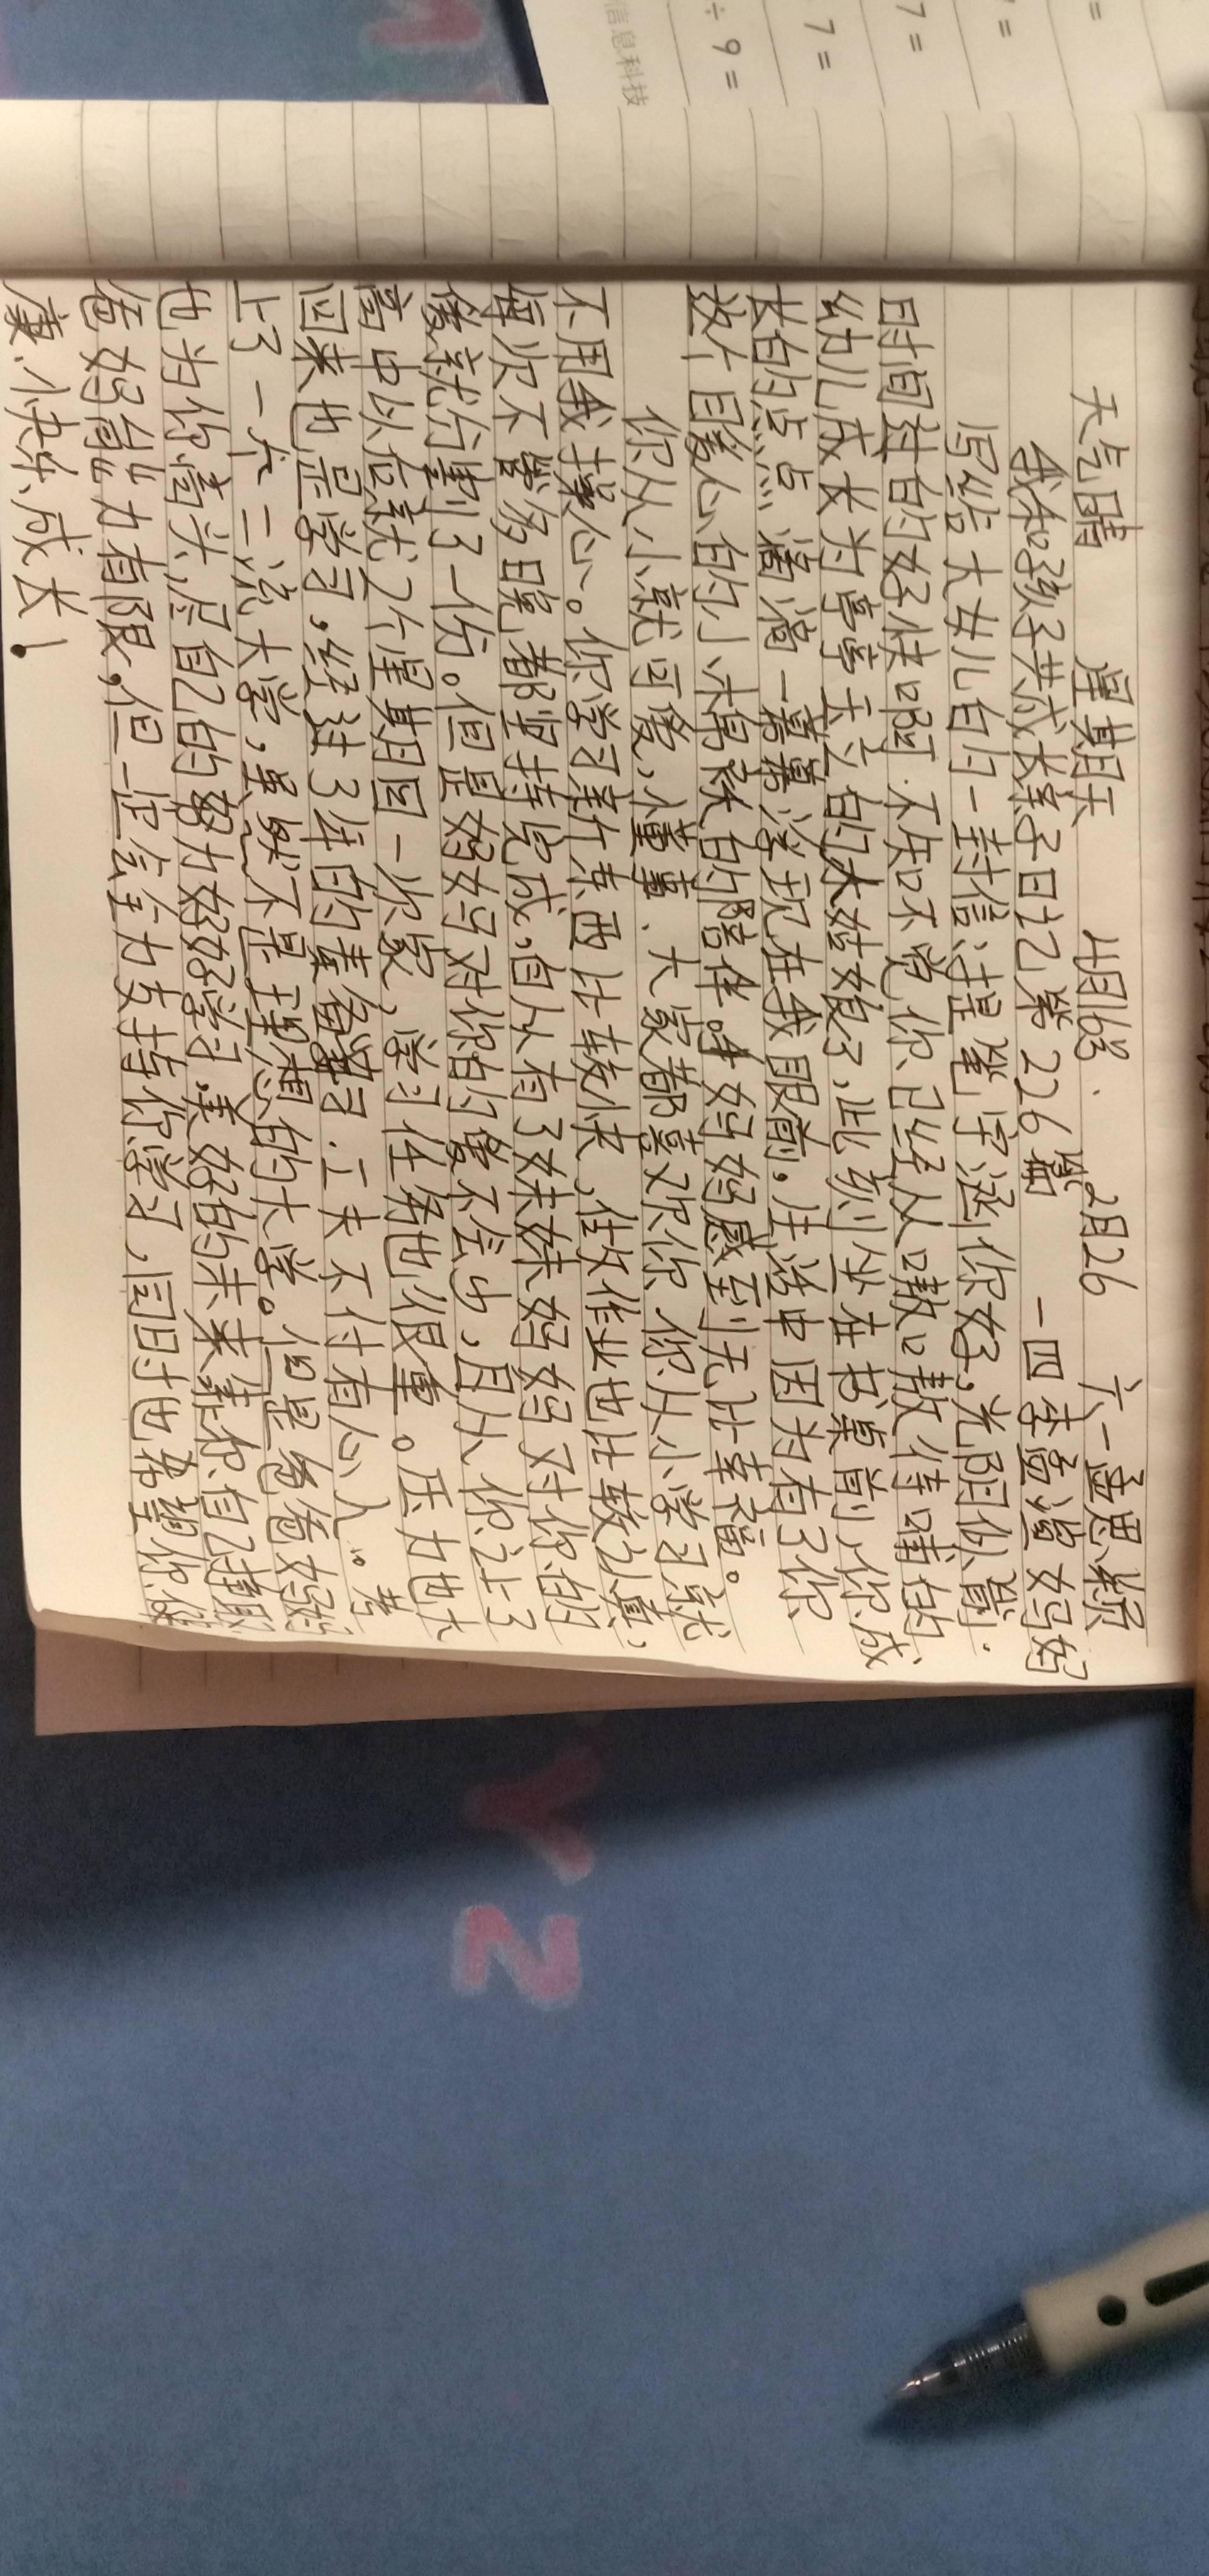 天气晴 星期天 2月26
我和孩子共成长亲子日记第226篇 一四李盈谊妈妈
写给大女儿的一封信:提笔字涵你好,光阴似箭.
时间过的好快啊.不知不觉你已经从嗷嗷待哺的
幼儿成长为亭亭玉立的大姑娘了,此刻坐在书桌前,你成
长的点点滴滴一幕幕浮现在我眼前,生活中因为有了你
这个国家心的小棉袄的陪伴,妈妈感到无比幸福。
你从小就可爱,懂事.大家都喜欢你,你从小学习就
不用我操心。你学习新东西比较快,做作业也比较认真,
每次不管多晚都坚持完成,自从有了妹妹妈妈对你的
爱就分割了一份。但是妈妈对你的爱不会少,自从你上了
高中以后就2个星期回一次家,学习任务也很重。压力也大
回来也是学习,经过3年的勤奋学习.工夫不付有心人。考
上了一个二流大学,虽然不是理想的大学。但是爸爸妈妈
也为你高兴,尽自己的努力好好学习,美好的未来靠你自己争取
爸妈能力有限,但一定会全力支持你学习,同时也希望你健
康.快乐成长!
÷9=
7=
7=
信息科技
Y
Z